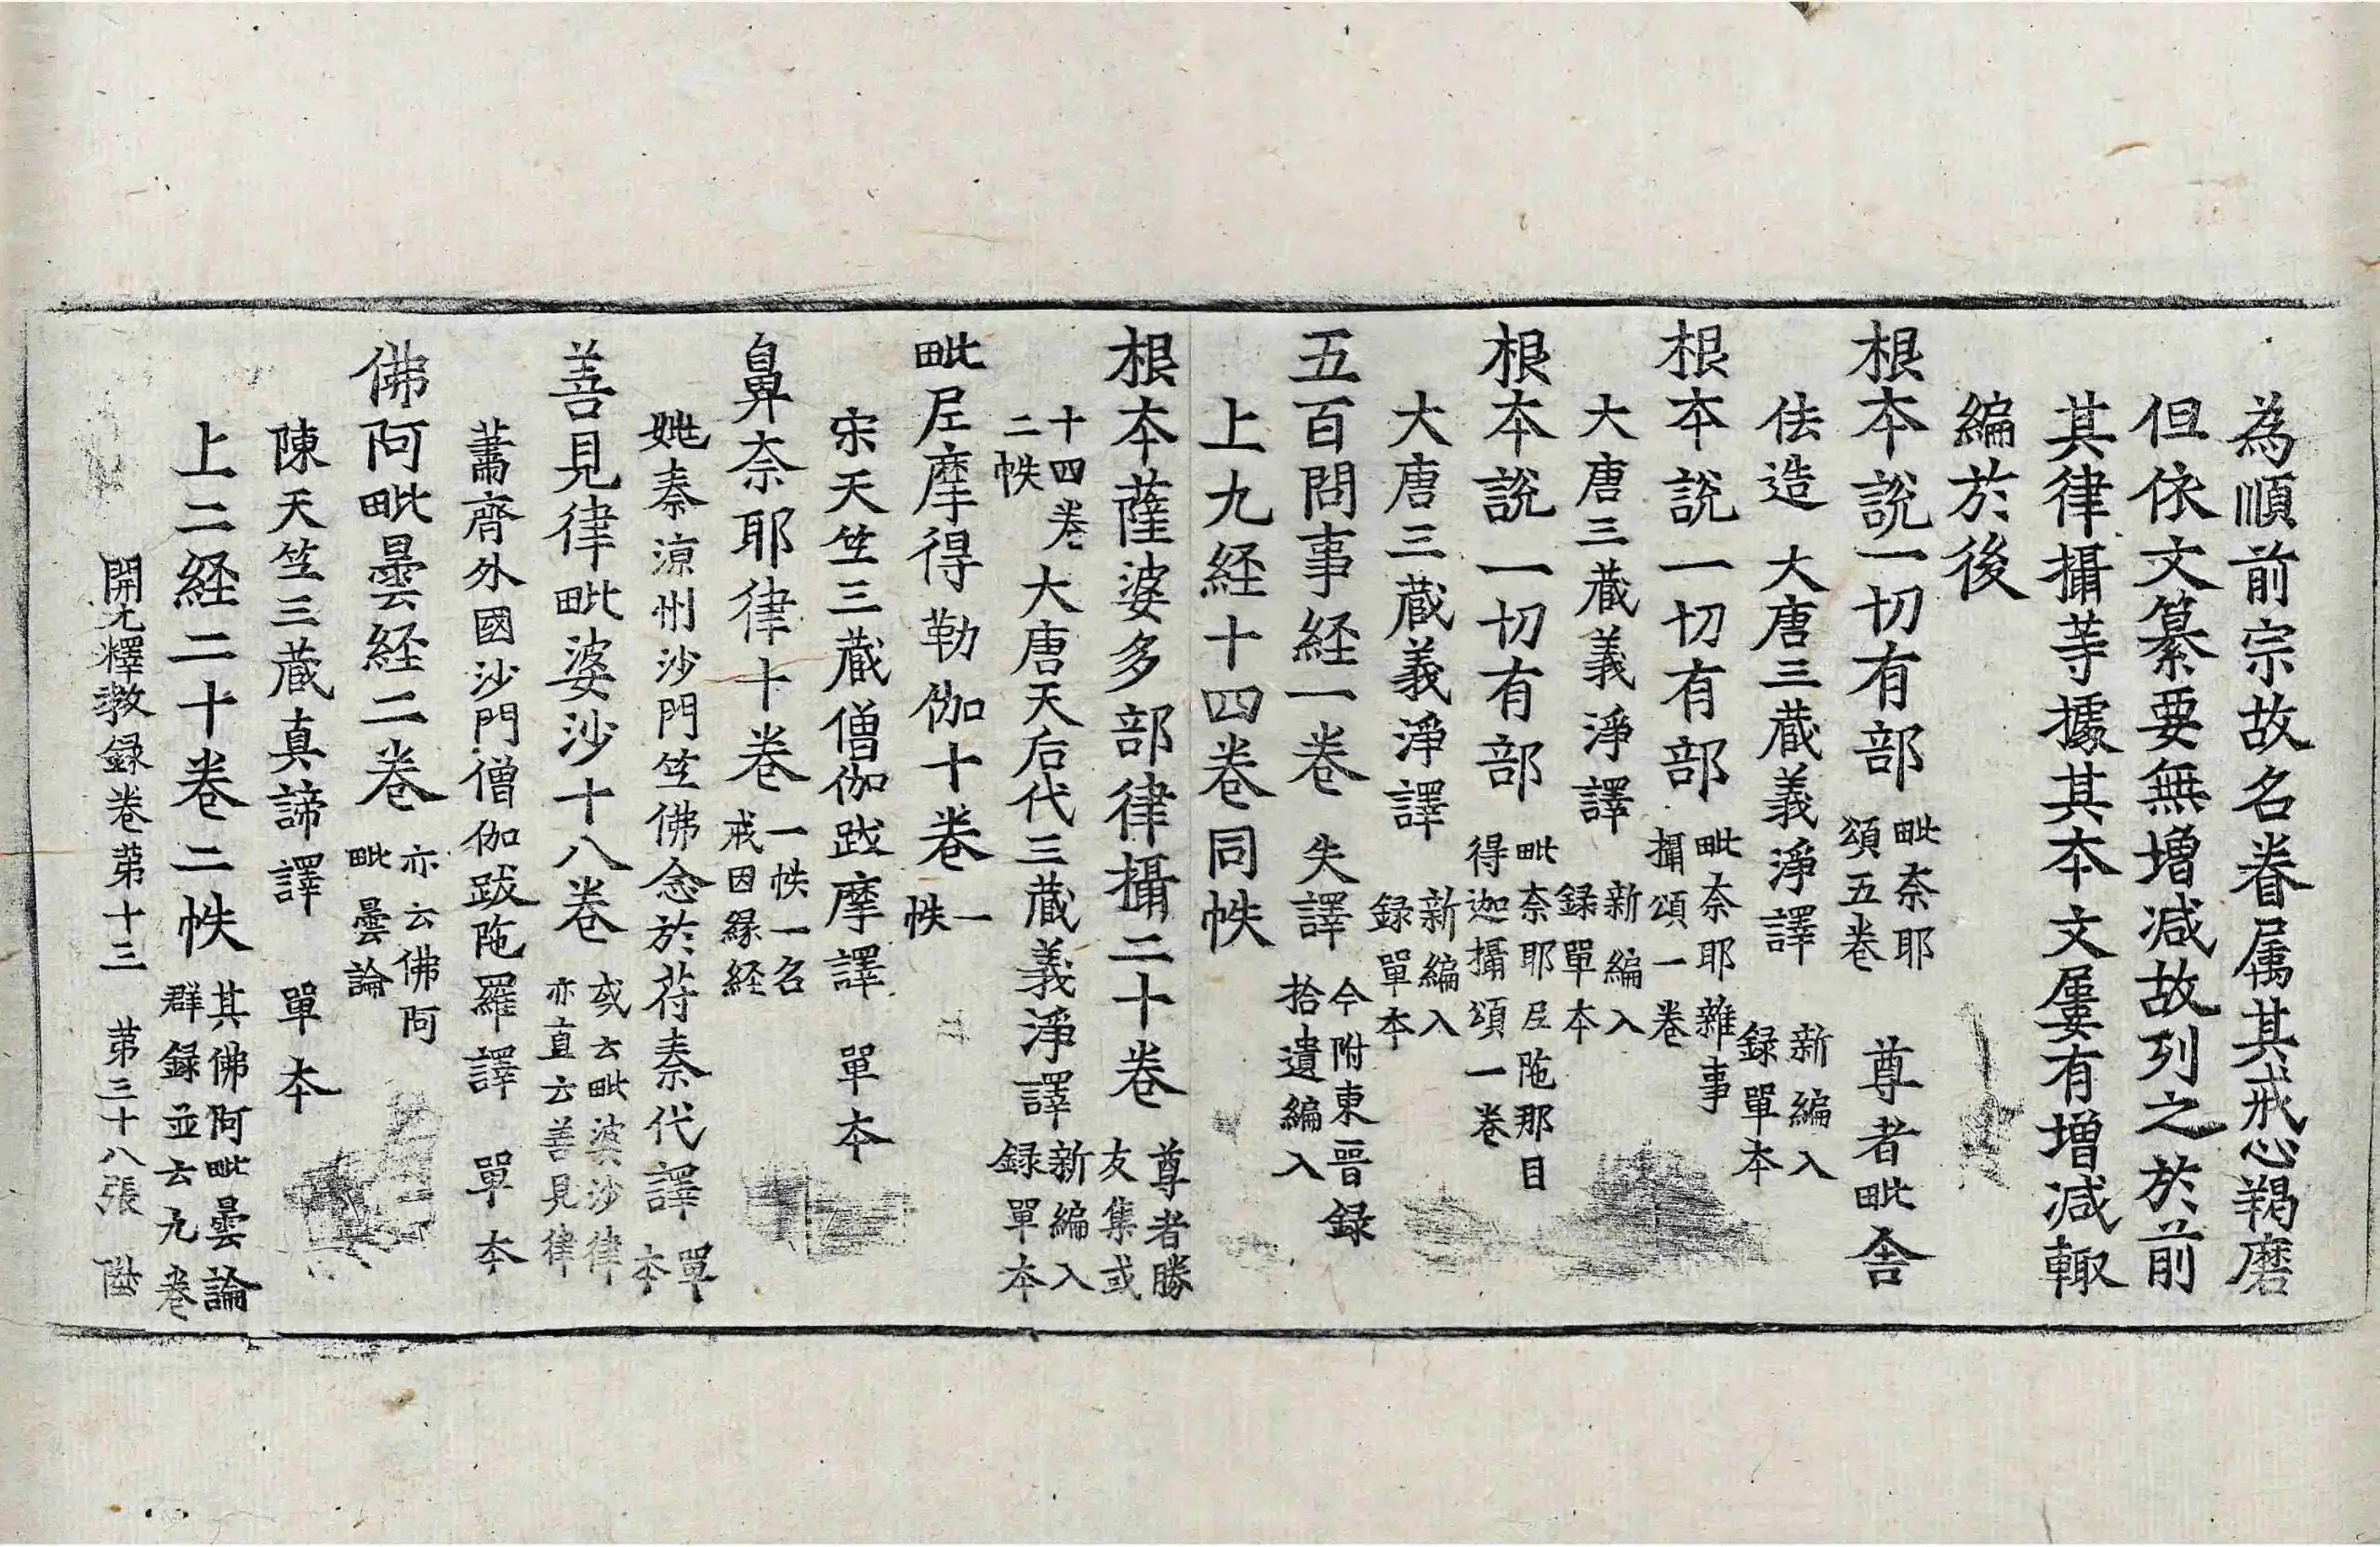 為順前宗故名眷属其戒心羯磨
但依文纂要無増減故列之於前
其律攝等據其本文屢有増減輙
編於後
根本說一切有部毗奈耶頌五卷 尊者毗舍
佉造 大唐三蔵義淨譯 新編入録單本
根本說一切有部毗奈耶雜事攝頌一卷
大唐三蔵義淨譯 新編入録單本
根本說一切有部毗奈耶尼陁那目得迦攝頌一卷
大唐三蔵義淨譯 新編入録單本
五百問事経一卷 失譯 今附東晉録拾遺編入
上九経十四卷同帙
根本薩婆多部律攝二十卷 尊者勝友集或
十四卷二帙 大唐天后代三蔵義淨譯 新編入録單本
毗尼摩得勒伽十卷 一帙
宋天竺三蔵僧伽跋摩譯 單本
鼻奈耶律十卷 一帙一名戒因緣経
姚秦涼州沙門竺佛念於苻秦代譯 單本
善見律毗婆沙十八卷 或云毗婆沙律亦直云善見律
蕭齊外國沙門僧伽跋陁羅譯 單本
佛阿毗曇経二卷 亦云佛阿毗曇論
陳天竺三蔵真諦譯 單本
上二経二十卷二帙 其佛阿毗曇論群録並云九卷
開元釋教録卷苐十三 苐三十八張 陞